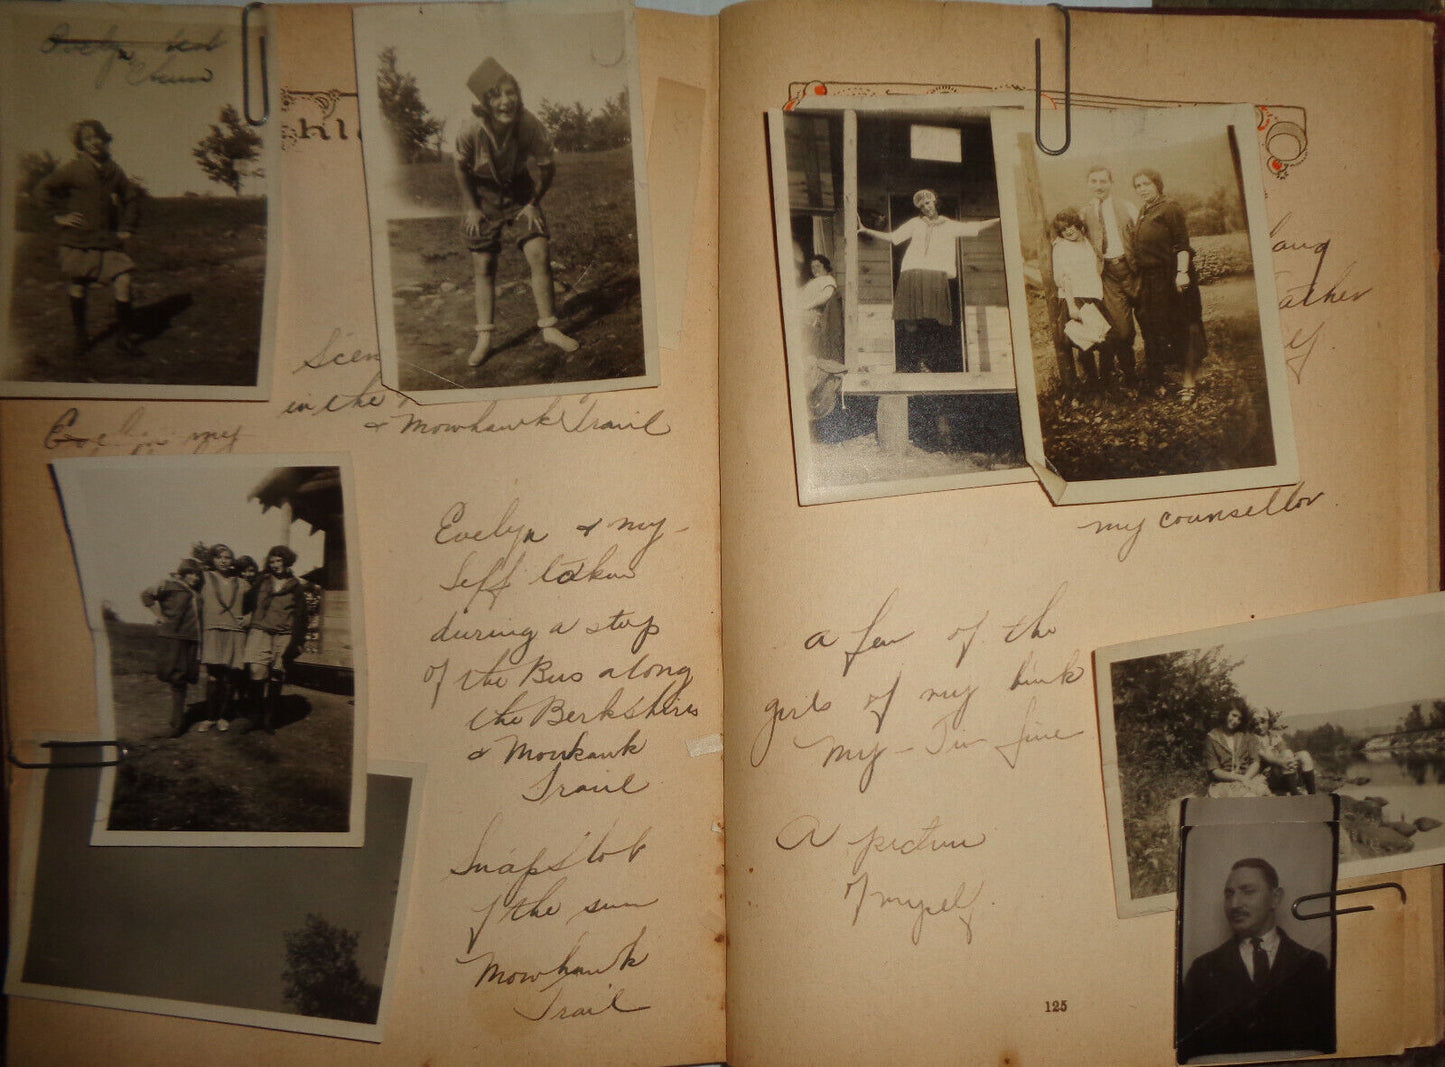 Evelyn
Chum
hl
Scen
in the
& Mowhawk Trail
Evelyn my
Evelyn & my-
self taken
during a stop
of the Bus along
the Berkshires
& Mowkawk
Trail
Snapshot
of the sun
Mowhawk
Trail
ather
my counsellor.
a few of the
girls of my bunk
My-Tu-fine
A picture
of myself.
125